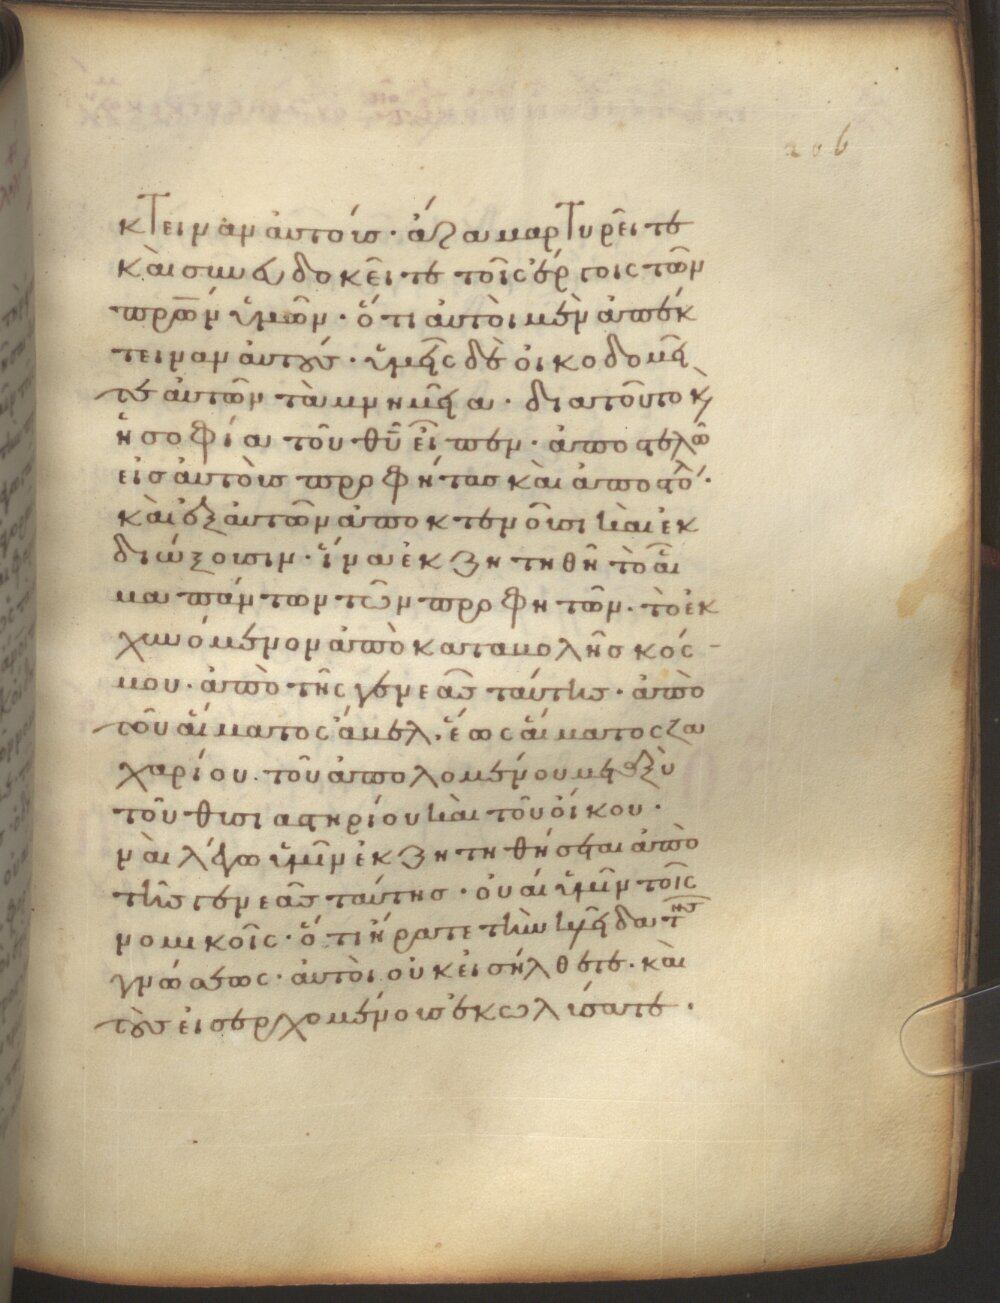 206
κτειναν αυτούσ· ἄρα μαρτυρεῖτε
καὶ συνευδοκεῖτε τοῖς ἔργοις τῶν
πρων ὑμῶν· ὅτι αὐτοὶ μὲν ἀπέκ
τειναν αὐτούσ· ὑμεῖς δὲ οἰκοδομεῖ
τε αὐτῶν τὰ μνημεῖα· διατοῦτο κὶ
ἡ σοφία τοῦ θυ εἶπεν· ἀποστελῶ
εἰσ αὐτοὺσ προφήτασ καὶ ἀποστό·
καὶ ἐξ αὐτῶν ἀποκτενοῦσι καὶ ἐκ
διώξουσιν· ἵνα ἐκζητηθῆ τὸ αἷ
μα πάντων τῶν προφητῶν· τὸ ἐκ
χυνόμενον ἀπὸ καταβολῆσ κόσ
μου· ἀπὸ τῆς γενεᾶσ ταύτησ· ἀπὸ
τοῦ αἵματος ἄβελ· ἕως αἵματος ζα
χαρίου· τοῦ ἀπολομένου μεταξὺ
τοῦ θυσιαστηρίου καὶ τοῦ οἴκου·
ναὶ λέγω ὑμῖν ἐκζητηθήσεται ἀπὸ
τῆσ γενεᾶσ ταύτησ· οὐαὶ ὑμῖν τοῖς
νομικοῖς· ὅτι ἤρατε τὴν κλεῖδα τῆσ
γνώσεως· αὐτοὶ οὐκ εἰσήλθετε· καὶ
τοὺσ εἰσερχομένουσ ἐκωλύσατε·